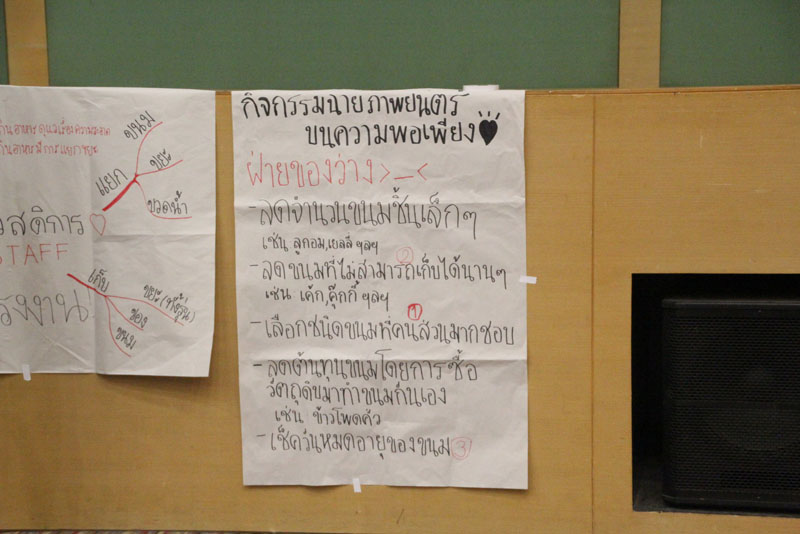 ขนม
ขยะ
แยก
ขวดน้ำ
สดิการ
STAFF
เก็บ
ขยะ
ของ
ขนม
กิจกรรมฉายภาพยนตร์
บนความพอเพียง
ฝ่ายของว่าง >_<
- ลดจำนวนขนมชิ้นเล็กๆ
เช่น ลูกอม, เยลลี่ ฯลฯ
- ลดขนมที่ไม่สามารถเก็บได้นานๆ ②
เช่น เค้ก, คุ๊กกี้ ฯลฯ
- เลือกชนิดขนมที่คนส่วนมากชอบ ①
- ลดต้นทุนขนมโดยการซื้อ
วัตถุดิบมาทำขนมกินเอง
เช่น ข้าวโพดคั่ว
- เช็ควันหมดอายุของขนม ③